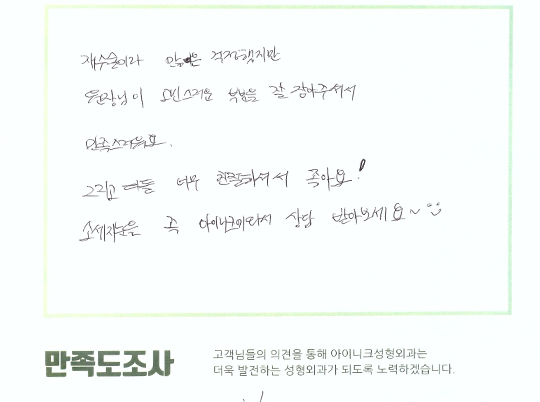 재수술이라 많은 걱정했지만
원장님이 고민스러운 부분을 잘 잡아주셔서
만족스러워요.
그리고 다들 너무 친절하셔서 좋아요!
꼭 아이니크와서 상담 받아보세요~
만족도조사
고객님들의 의견을 통해 아이니크성형외과는
더욱 발전하는 성형외과가 되도록 노력하겠습니다.